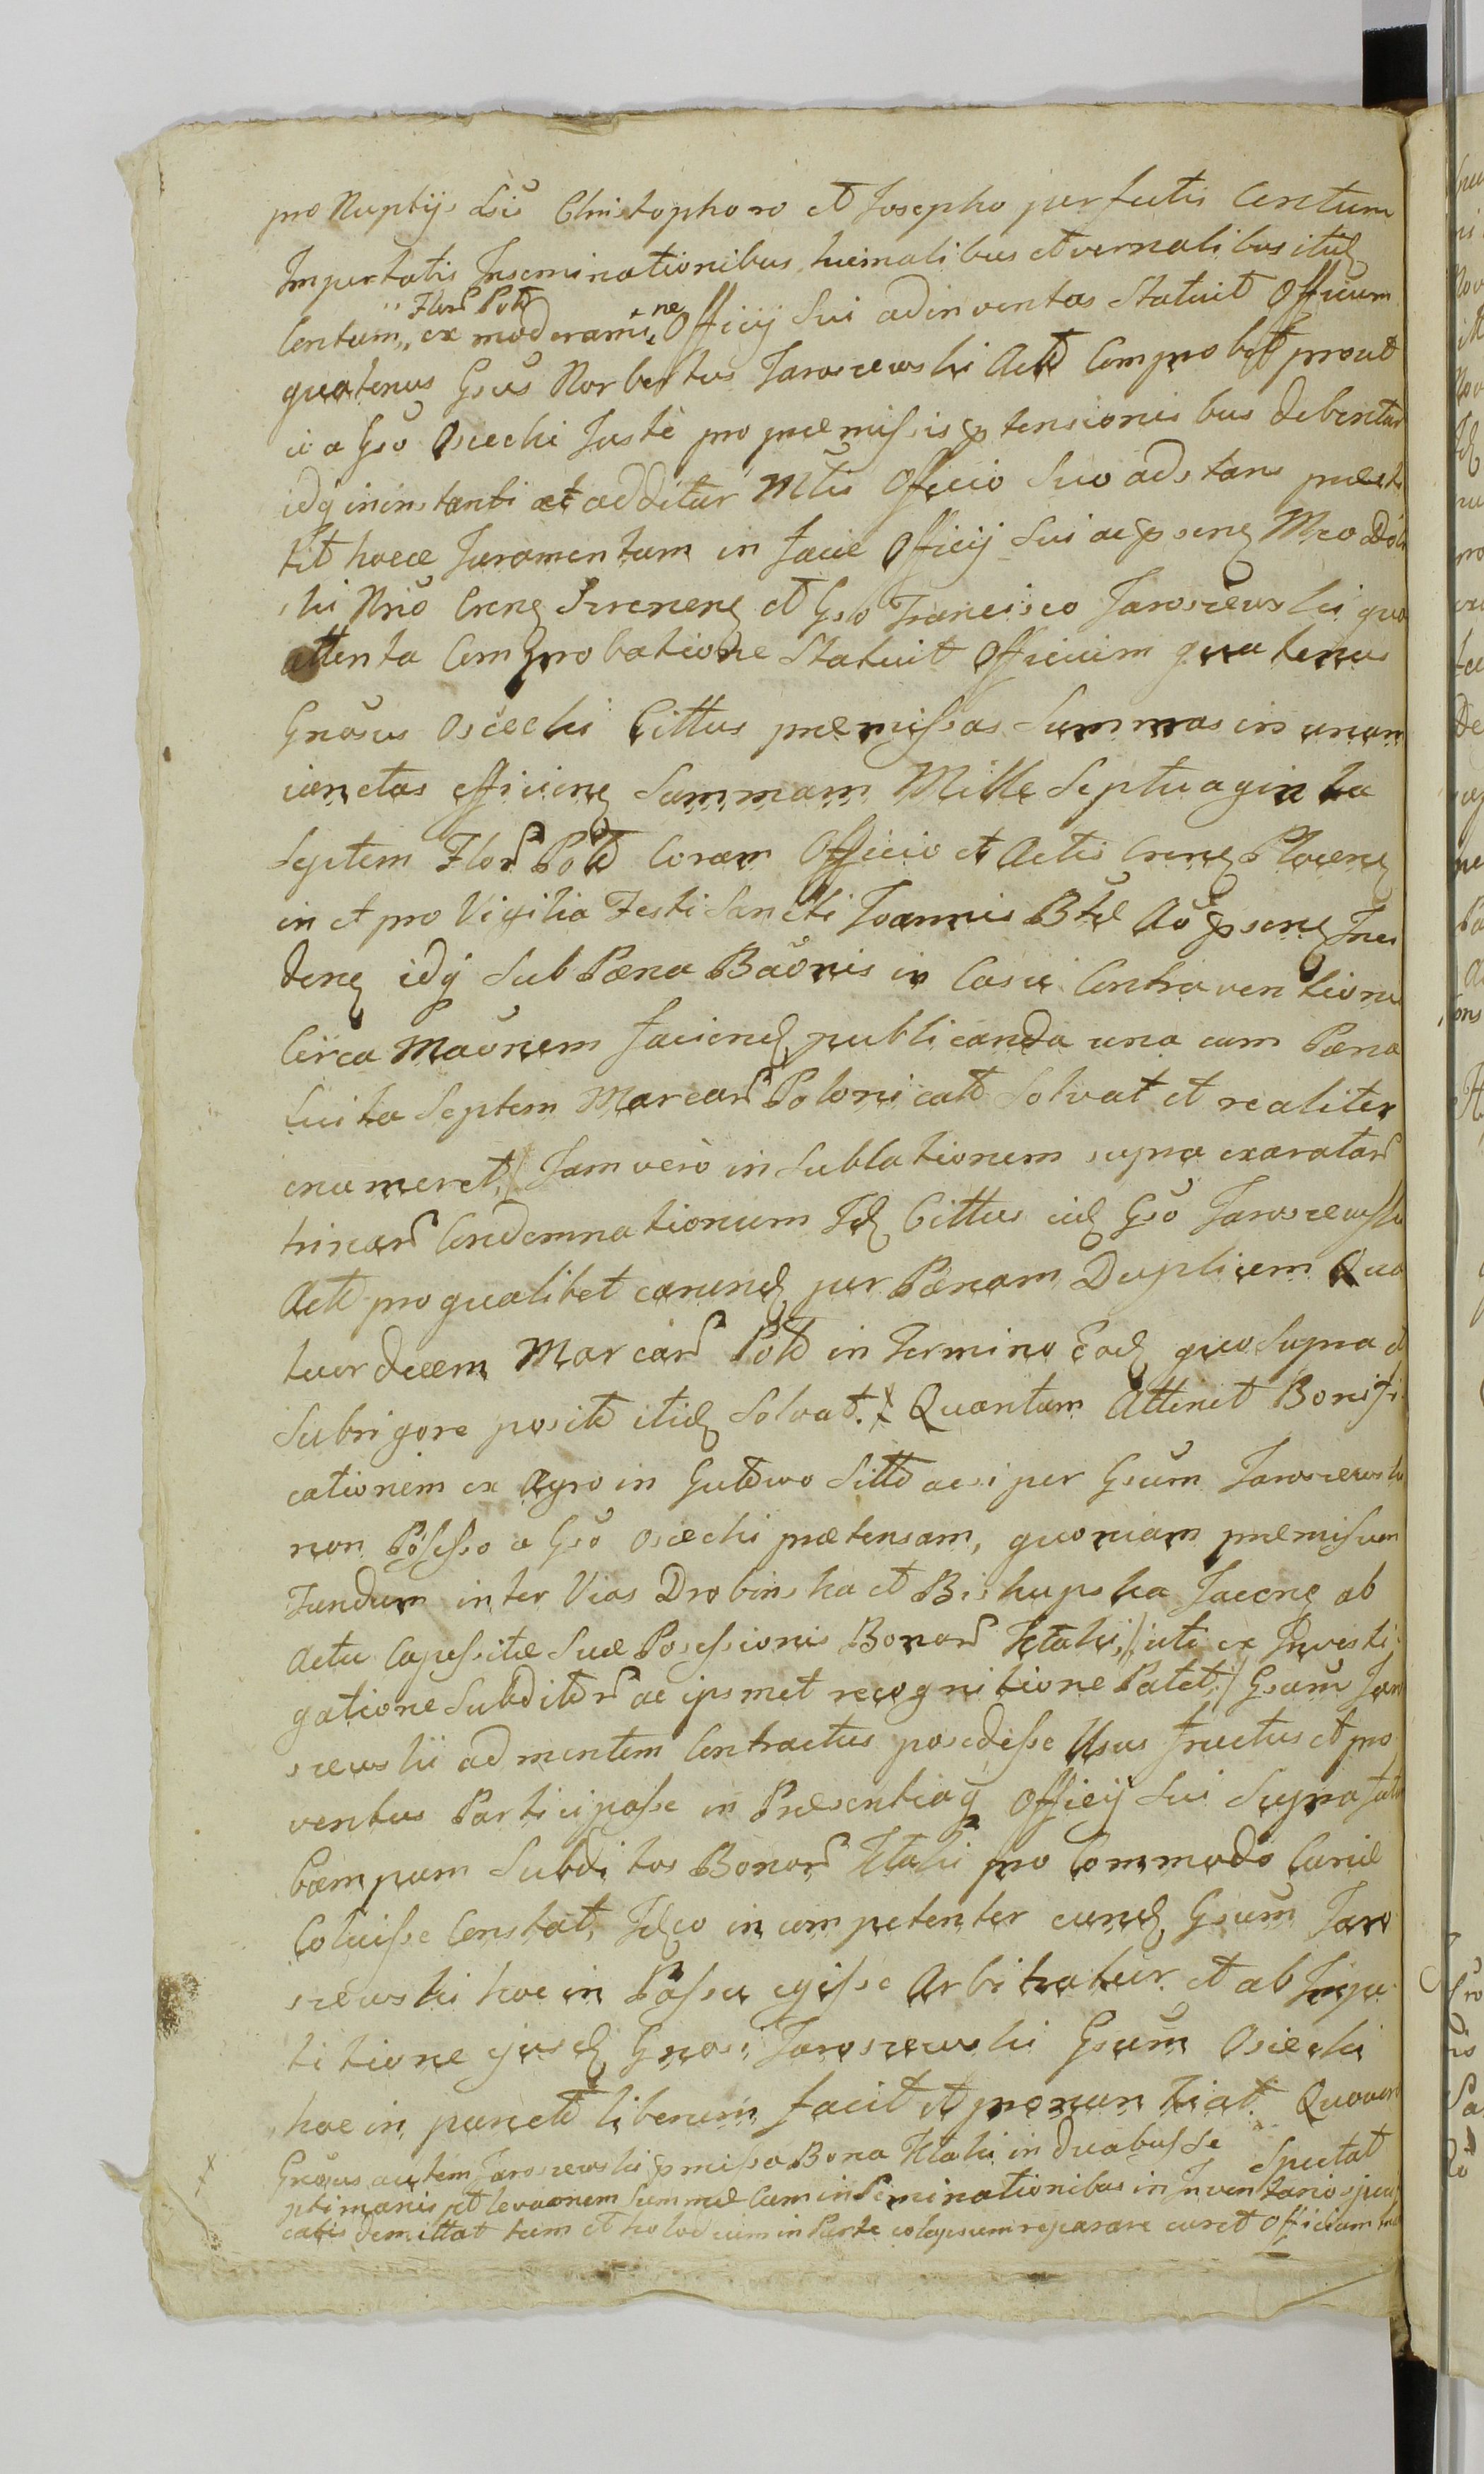 pro Nuptijs Lsis Christophoro et Josepho perfectis Centum
Impertatis Inseminationibus hiemalibus et vernalibus itid
Flor Pold
Centum,, ex moderamine Officij Sui adinventas Statuit Officium
quatenus Gsus Norbertus Jaroszewski Acto Comprobet prout
ii a Gso Osiecki Juste pro præmissis prtensionibus debentur
idq in instanti et additur Mtis Officio Suo adstans præsti
tit hocce Juramentum in facie Officij Sui ac psen Mco
ski Nrio Cren Srenen et Gso Francisco Jaroszewski quo
attenta Comprobatione Statuit Officium quatenus
Gnosus Osiecki Cittus præmissas Summas in unam
iunctas efficien Summam Mille Septuaginta
Septem Flor Pold Coram Officio et Actis Cren Plocen
in et pro Vigilia Festi Sancti Joannis Btæ Ao psen Inci
den idq Sub Pæna Baonis in Casu Contraventionis
Circa Maonem faciend publicanda una cum Pæna
luita Septem Marcar Polonicald Solvat et realiter
enumeret,/ Jam vero in Sublationem supra exaratar
trinar Condemnationum Id Cittus eid Gso Jaroszewski
Acto pro qualibet earund per Pænam Duplicem Qua
tuordecem Marcar Pold in Termino Eod quo Supra et
Sub rigore posito itid Solvat. Quantum Attinet Bonifi
cationem ex Agro in Gutowo Sitto acsi per Gsum Jaroszewski
non Possesso a Gso Osiecki prætensam, quoniam præmissum
Fundum inter Vias Drobinska et Biskupska Jacen ab
Actu Capessitæ Suæ Possessionis Bonor Ktaki,/ uti ex Investi
gatione Subditor ac ipsmet recognitione Patet,/ Gsum Jaro
szewski ad mentem Contractus possedisse Usus fructus et pro
ventus Participasse in Præsentiaq Officij Sui Supra fat
Campum Subditos Bonor Ktaki pro Commodo Curiæ
Coluisse Constat, Ideo incompetenter eund Gsum Jaro
szewski hoc in Passu egisse Arbitratur et ab Impe
titione ejusd Gnosi Jaroszewski Gsum Osiecki
hoc in puncto liberum facit et pronuntiat. Quovero
Gnosus autem Jaroszewski pmissa Bona Ktaki in duabus Se Spectat
ptimanis pt levaonem Summæ Cum inSeminationibus in Inventario speci
catis demittat tum et holodcium in Parte colapsum reparare curet Officium